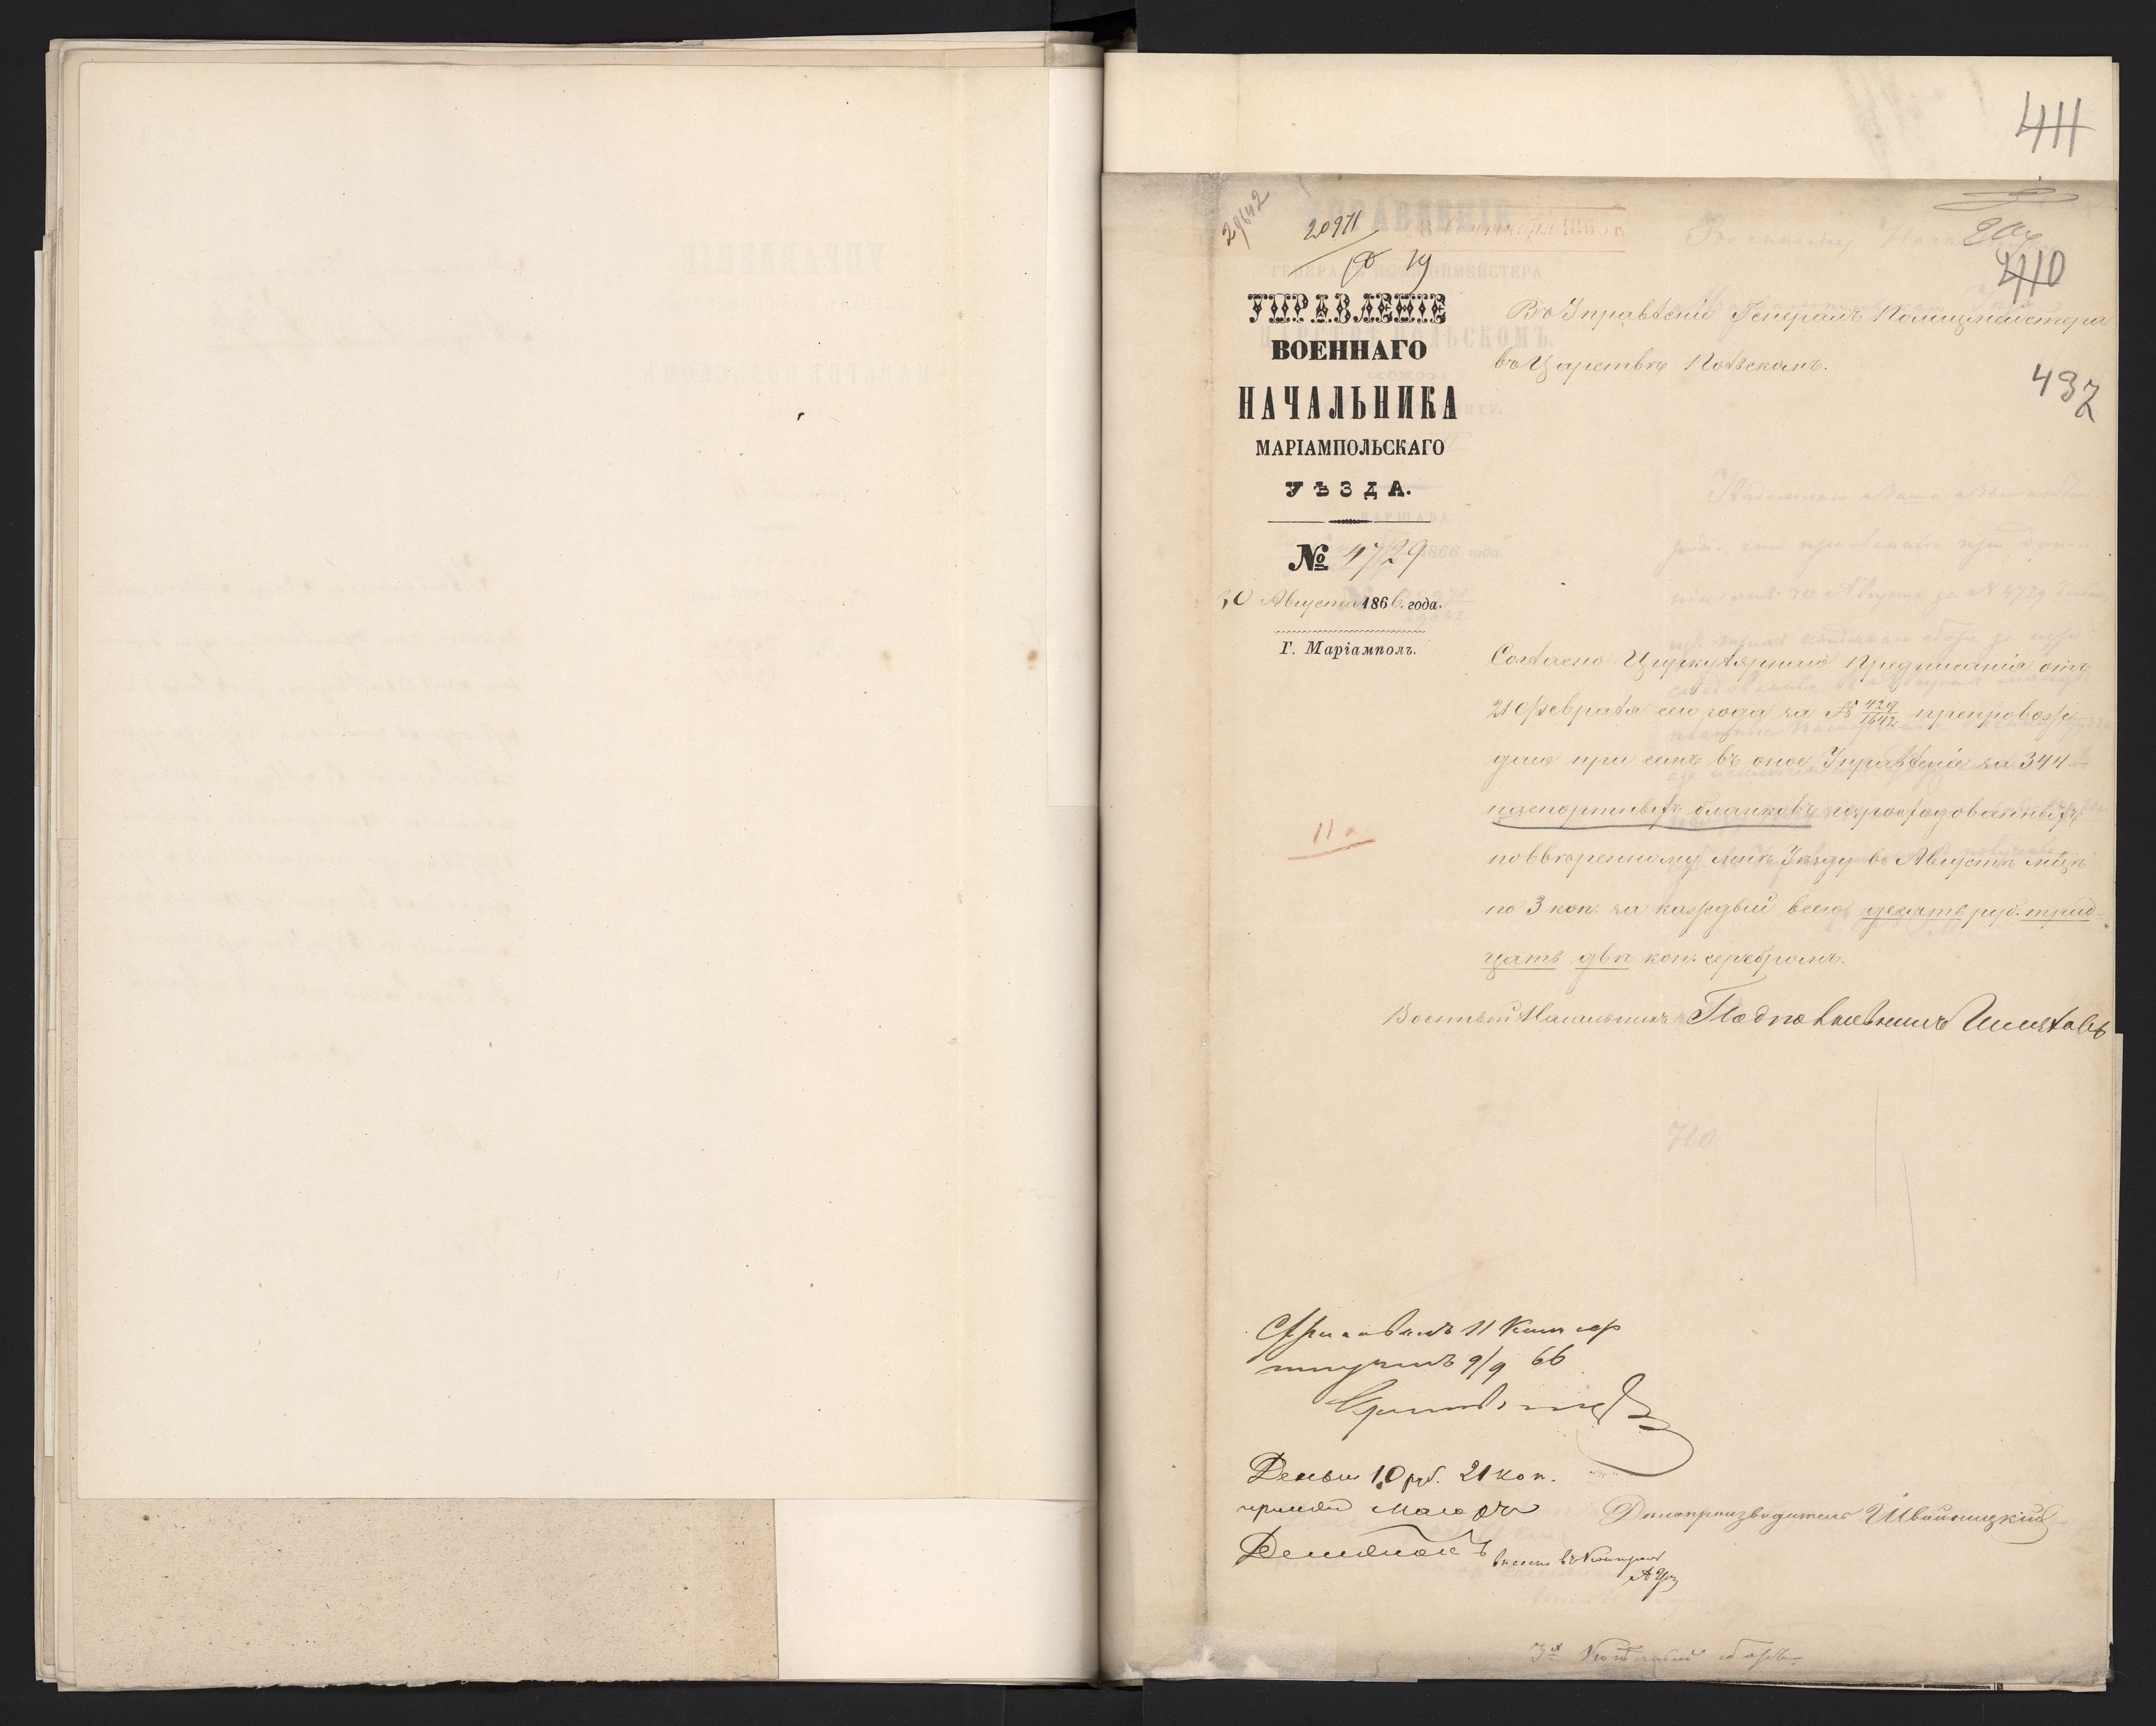 411
29642
20971
19
204
410
437
УПРАВЛЕНІЕ
ВОЕННАГО
НАЧАЛЬНИКА
МАРІАМПОЛЬСКАГО
УѢЗДА.
№ 4729
30 Августа 1866. года.
Г. Маріамполь.
Въ Управленіе Генералъ Полицмейстера
въ Царствѣ Польскомъ.
Согласно Циркулярнаго Предписанія отъ
21 Февраля сего года за № 429/1642 препровож-
дая при семъ въ оное Управленіе за 344
паспортныхъ бланковъ израсходованныхъ
по ввѣренному мнѣ Уѣзду въ Августѣ мѣцѣ
по 3 коп. за каждый всего десять руб. трид-
цать двѣ коп. серебромъ.
11 к.
Военный Начальникъ Подполковникъ
11 Коп сер
9/9 66
Деньги 10 руб. 21 коп.
принялъ Маіоръ
Дѣлопроизводитель
внесены въ Контроль
3я Копѣечный сборъ.